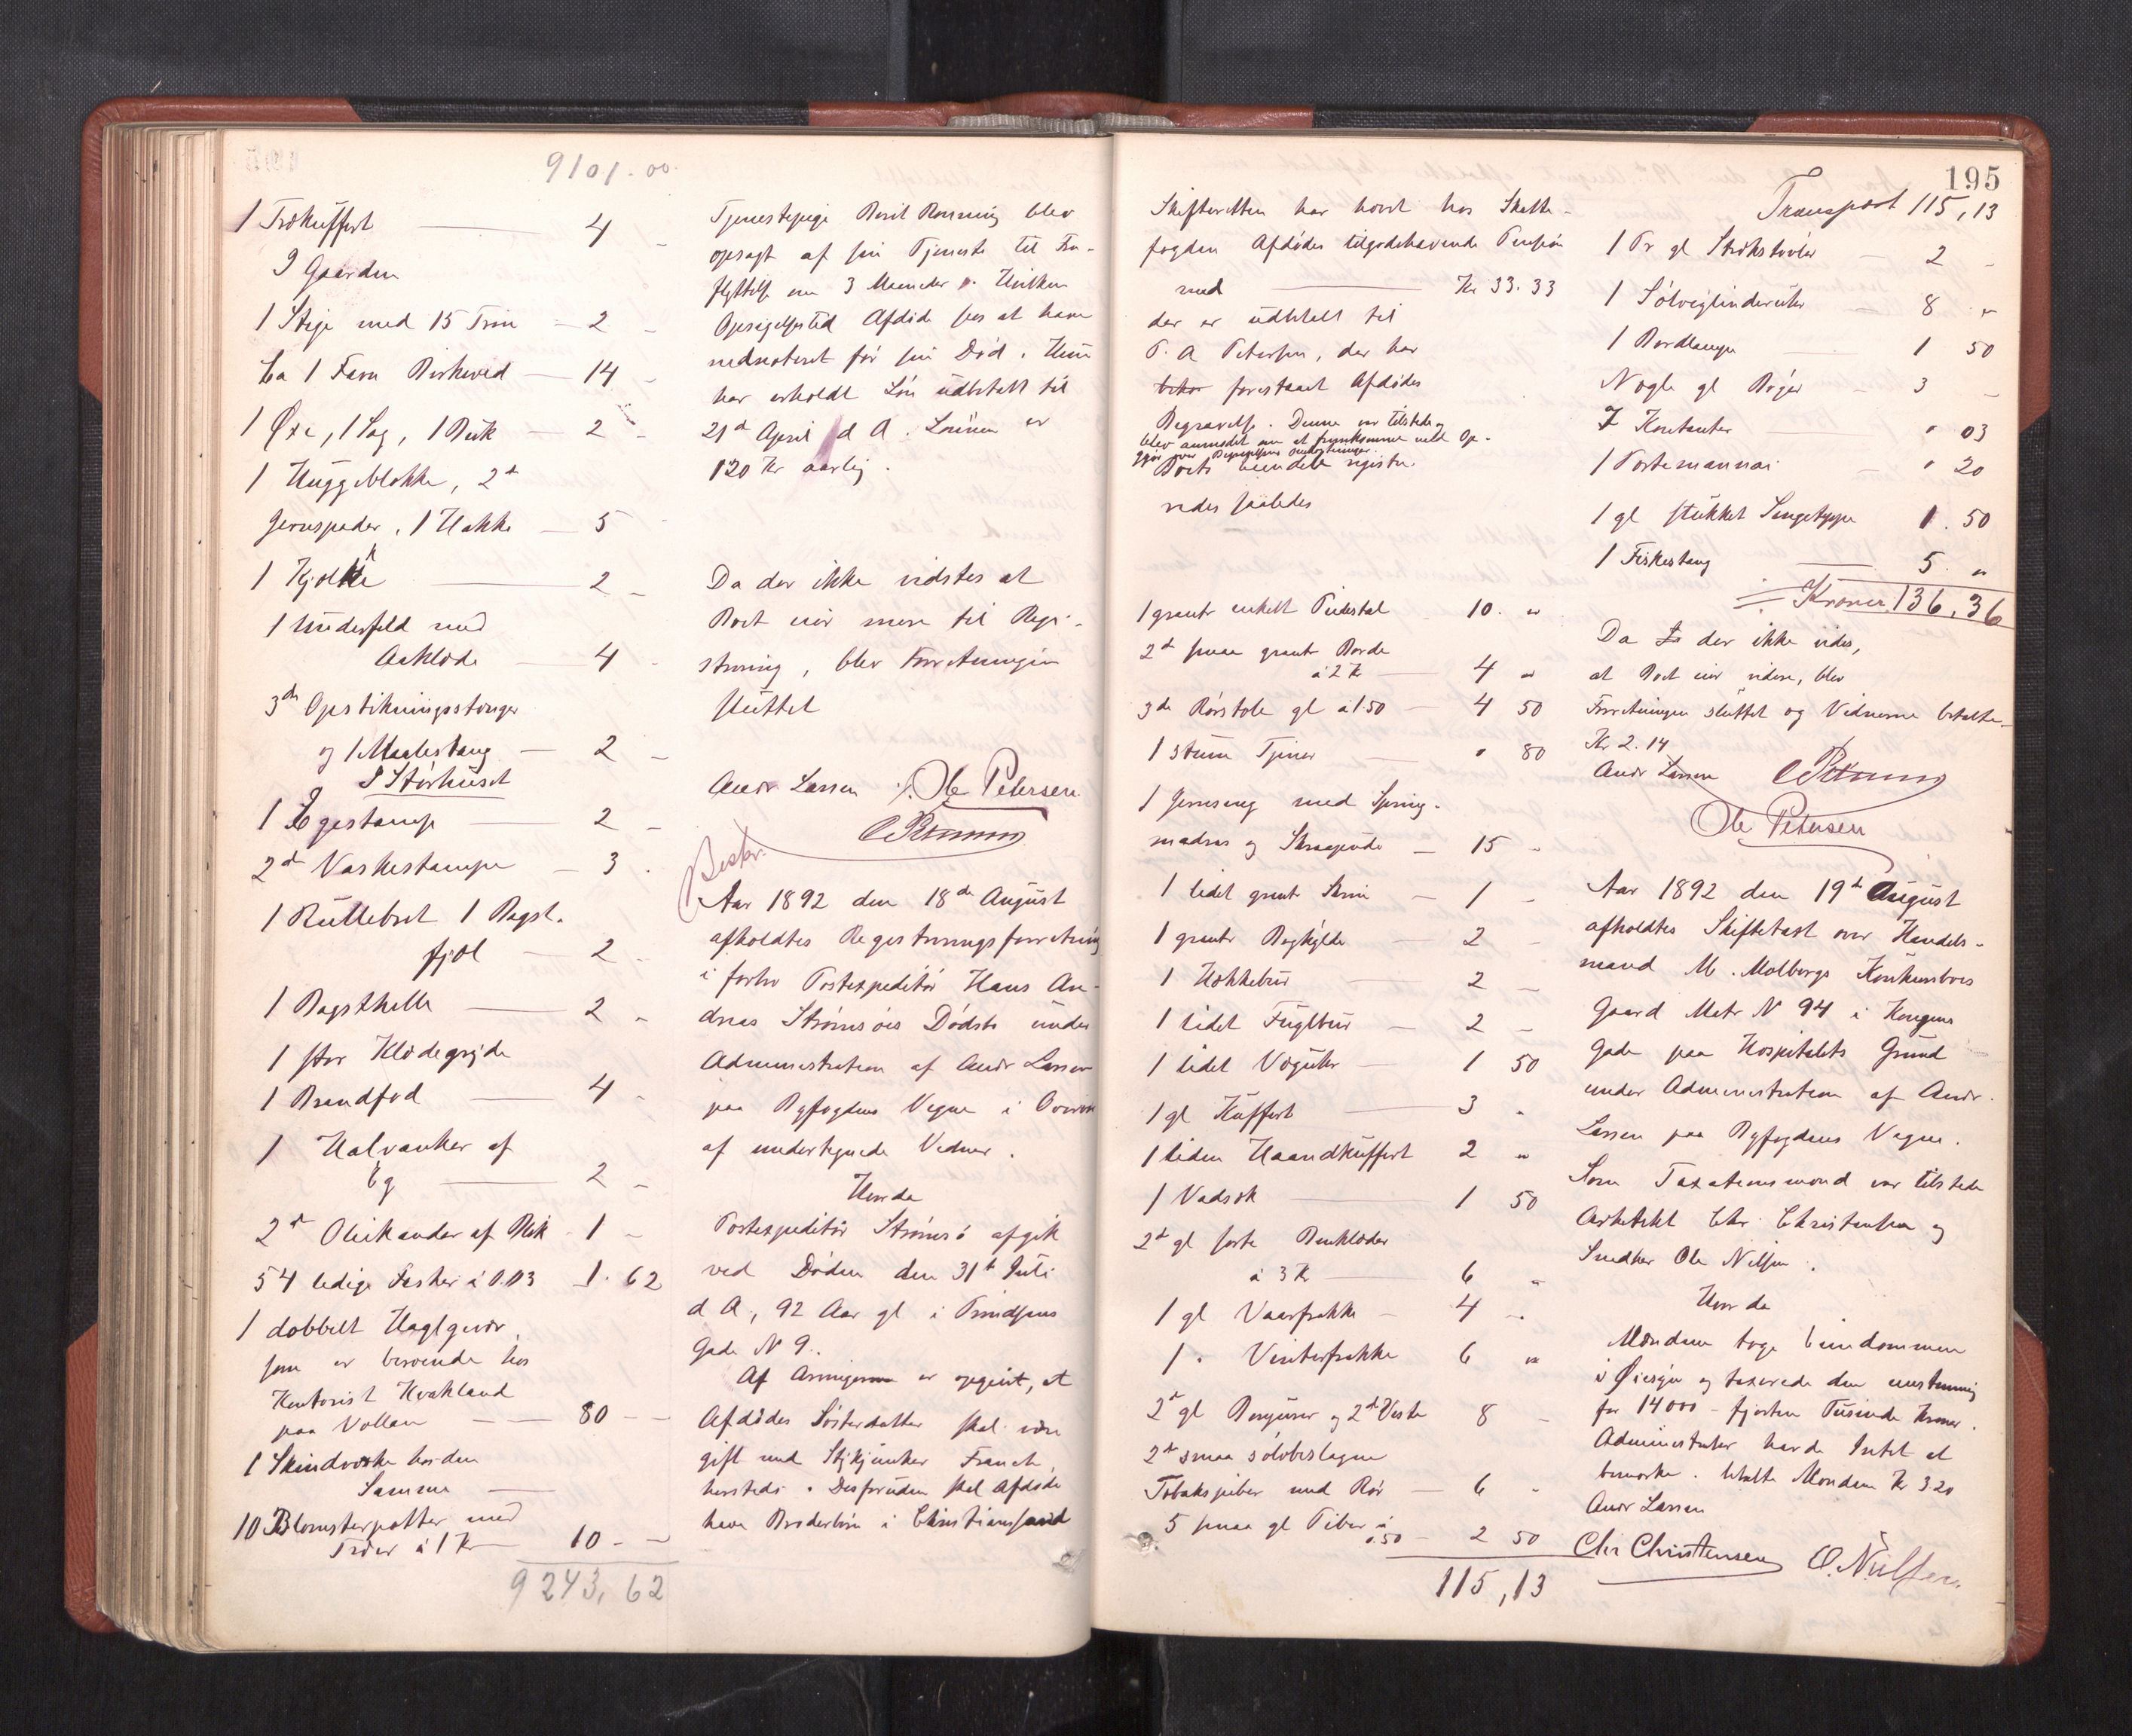 9101.00
1 Trækuffert 4 -
I Gaarden
1 Stige med 15 Trin - 2 -
Ca 1 Favn Birkeved - 14 -
1 Øxe, 1 Sag, 1 Buk - 2 -
1 Huggeblokke, 2d
Jernspader, 1 Hakke - 5 -
1 Kjælke 2 -
1 Underfeld med
Aaklæde - 4 -
3de Opstikningsstænger
og 1 Maalestang - 2 -
I Størhuset
1 Egestamp 2 -
2d Vaskestampe - 3 .
1 Rullebret 1 Bagst.
fjøl - 2 -
1 Bagsthelle 2 -
1 stor Klædegryde
1 Brandfod 4 -
1 Halvanker af
Eg 2 -
2d Oliekander af Blik - 1 -
54 ledige Flasker à 0.03 1.62
1 dobbelt Haglgevær,
som er beroende hos
Kontorist Kvakland
paa Vollan 80 -
1 Skindveske hos den
Samme
10 Blomsterpotter med
Træer à 1 Kr 10 -
9243,62
Tjenestepige Beret Rønning blev
opsagt af sin Tjeneste til Fra-
flyttelse om 3 Maaneder . Hvilken
Opsigelsestid Afdøde sees at have
nednoteret før sin Død. Hun
har erholdt Løn udbetalt til
21de April d A. Lønnen er
120 Kr aarlig.
Da der ikke vidstes at
Boet eier mere til Regi-
strering, blev Forretningen
sluttet
Andr Larsen Ole Petersen
Beskr.
Aar 1892 den 18de August
afholdtes Registreringsforretning
i forhv Postexpeditør Hans An-
dreas Strømsøes Dødsbo under
Administration af Andr Larsen
paa Byfogdens Vegne i Overvær
af undertegnede Vidner.
Hvorda
Postexpeditør Strømsø afgik
ved Døden den 31te Juli
d A, 92 Aar gl i Trindsens
Gade N 9.
Af Arvinger er opgivet, at
Afdødes Søsterdatter skal være
gift med Stykjunker Franck,
hersteds. Desforuden skal Afdøde
have Broderbørn i Christianssand
195
Skifteretten har hævet hos Skatte-
fogden Afdødes tilgodehavende Pension
med Kr 33.33
der er udbetalt til
P. A Petersen, der har
forestaaet Afdødes
Begravelse. Denne var tilstede og
blev anmodet om at fremkomme med Op-
gjør over Begravelsens Omkostninger.
Boets Eiendele registre-
redes saaledes
1 grønt enkelt Pidestal 10. "
2d smaa grønt Borde
à 2 Kr 4 "
3de Rørstole gl à 1.50 - 4 50
1 stum Tjener " 80
1 Jernseng med Spring-
madras og Skraapude - 15 "
1 lidet grønt Skrin - 1 -
1 grønt Boghylde - 2 -
1 Hækkebur 2 -
1 lidet Fuglbur - 2 -
1 lidet Væguhr 1 50
1 gl Kuffert 3 "
1 liden Haandkuffert 2 "
1 Vadsæk 1 50
2d gl sorte Benklæder
à 3 Kr 6 "
1 gl Vaarfrakke - 4 "
1 " Vinterfrakke 6 "
2d gl Benyurer og 2d Veste 8 -
2d smaa sølvbeslagne
Tobakspiber med Rør - 6 -
5 smaa gl Piber à
0.50 - 2 50
115,13
Transport 115,13
1 Pr gl Strikstøvler - 2 -
1 Sølvcylinderuhr - 8 "
1 Bordlampe 1 50
Nogle gl Bøger - 3 -
I Kontanter " 03
1 Portemonnai " 20
1 gl stukket Sengetæppe 1.50
1 Fiskestang 5. "
Kroner 136,36
Da der ikke vides,
at Boet eier videre, blev
Forretningen sluttet og Vidnerne betalte
Kr 2.14
Andr Larsen
Ole Petersen
Aar 1892 den 19de August
afholdtes Skiftetaxt over Handels-
mand M. Molbergs Konkursboes
Gaard Matr N 94 i Kongens
Gade paa Hospitalets Grund
under Administration af Andr.
Larsen paa Byfogdens Vegne.
Som Taxationsmænd var tilstede
Arkitekt Chr. Christensen og
Snedker Ole Nilsen.
Hvorda
Mændene toge Eiendommen
i Øiesyn og taxerede den enstemmig
for 14000 - fjorten Tusinde Kroner.
Administrator havde Intet at
bemærke. betalte Mændene Kr 3.20
Andr Larsen
Chr Christensen O. Nielsen.